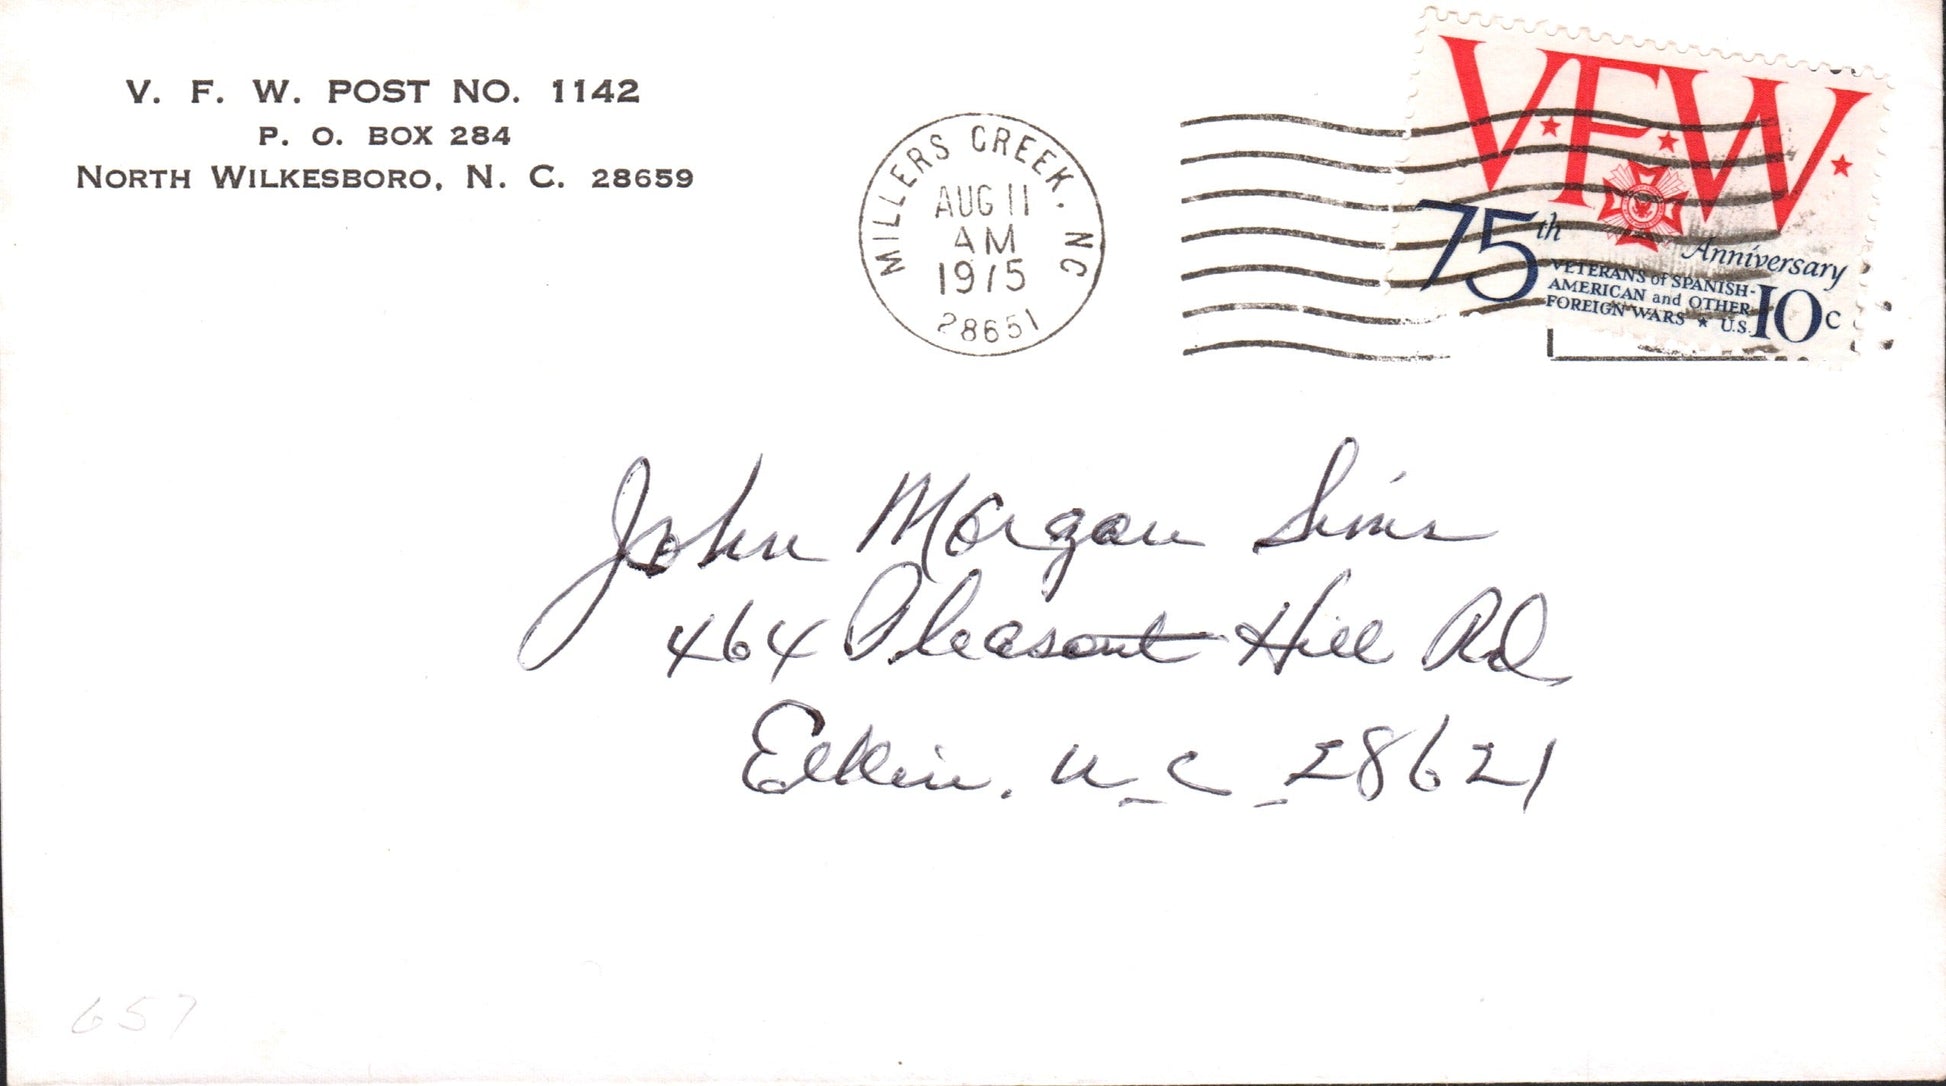 V. F. W. POST NO. 1142
P. O. BOX 284
NORTH WILKESBORO, N. C. 28659
MILLERS CREEK, NC
AUG 11
AM
1975
28651
VFW
75th Anniversary
VETERANS of SPANISH-
AMERICAN and OTHER
FOREIGN WARS ★ U.S. 10c
John Morgan Sims
464 Pleasant Hill Rd
Elkin, N. C. 28621
657